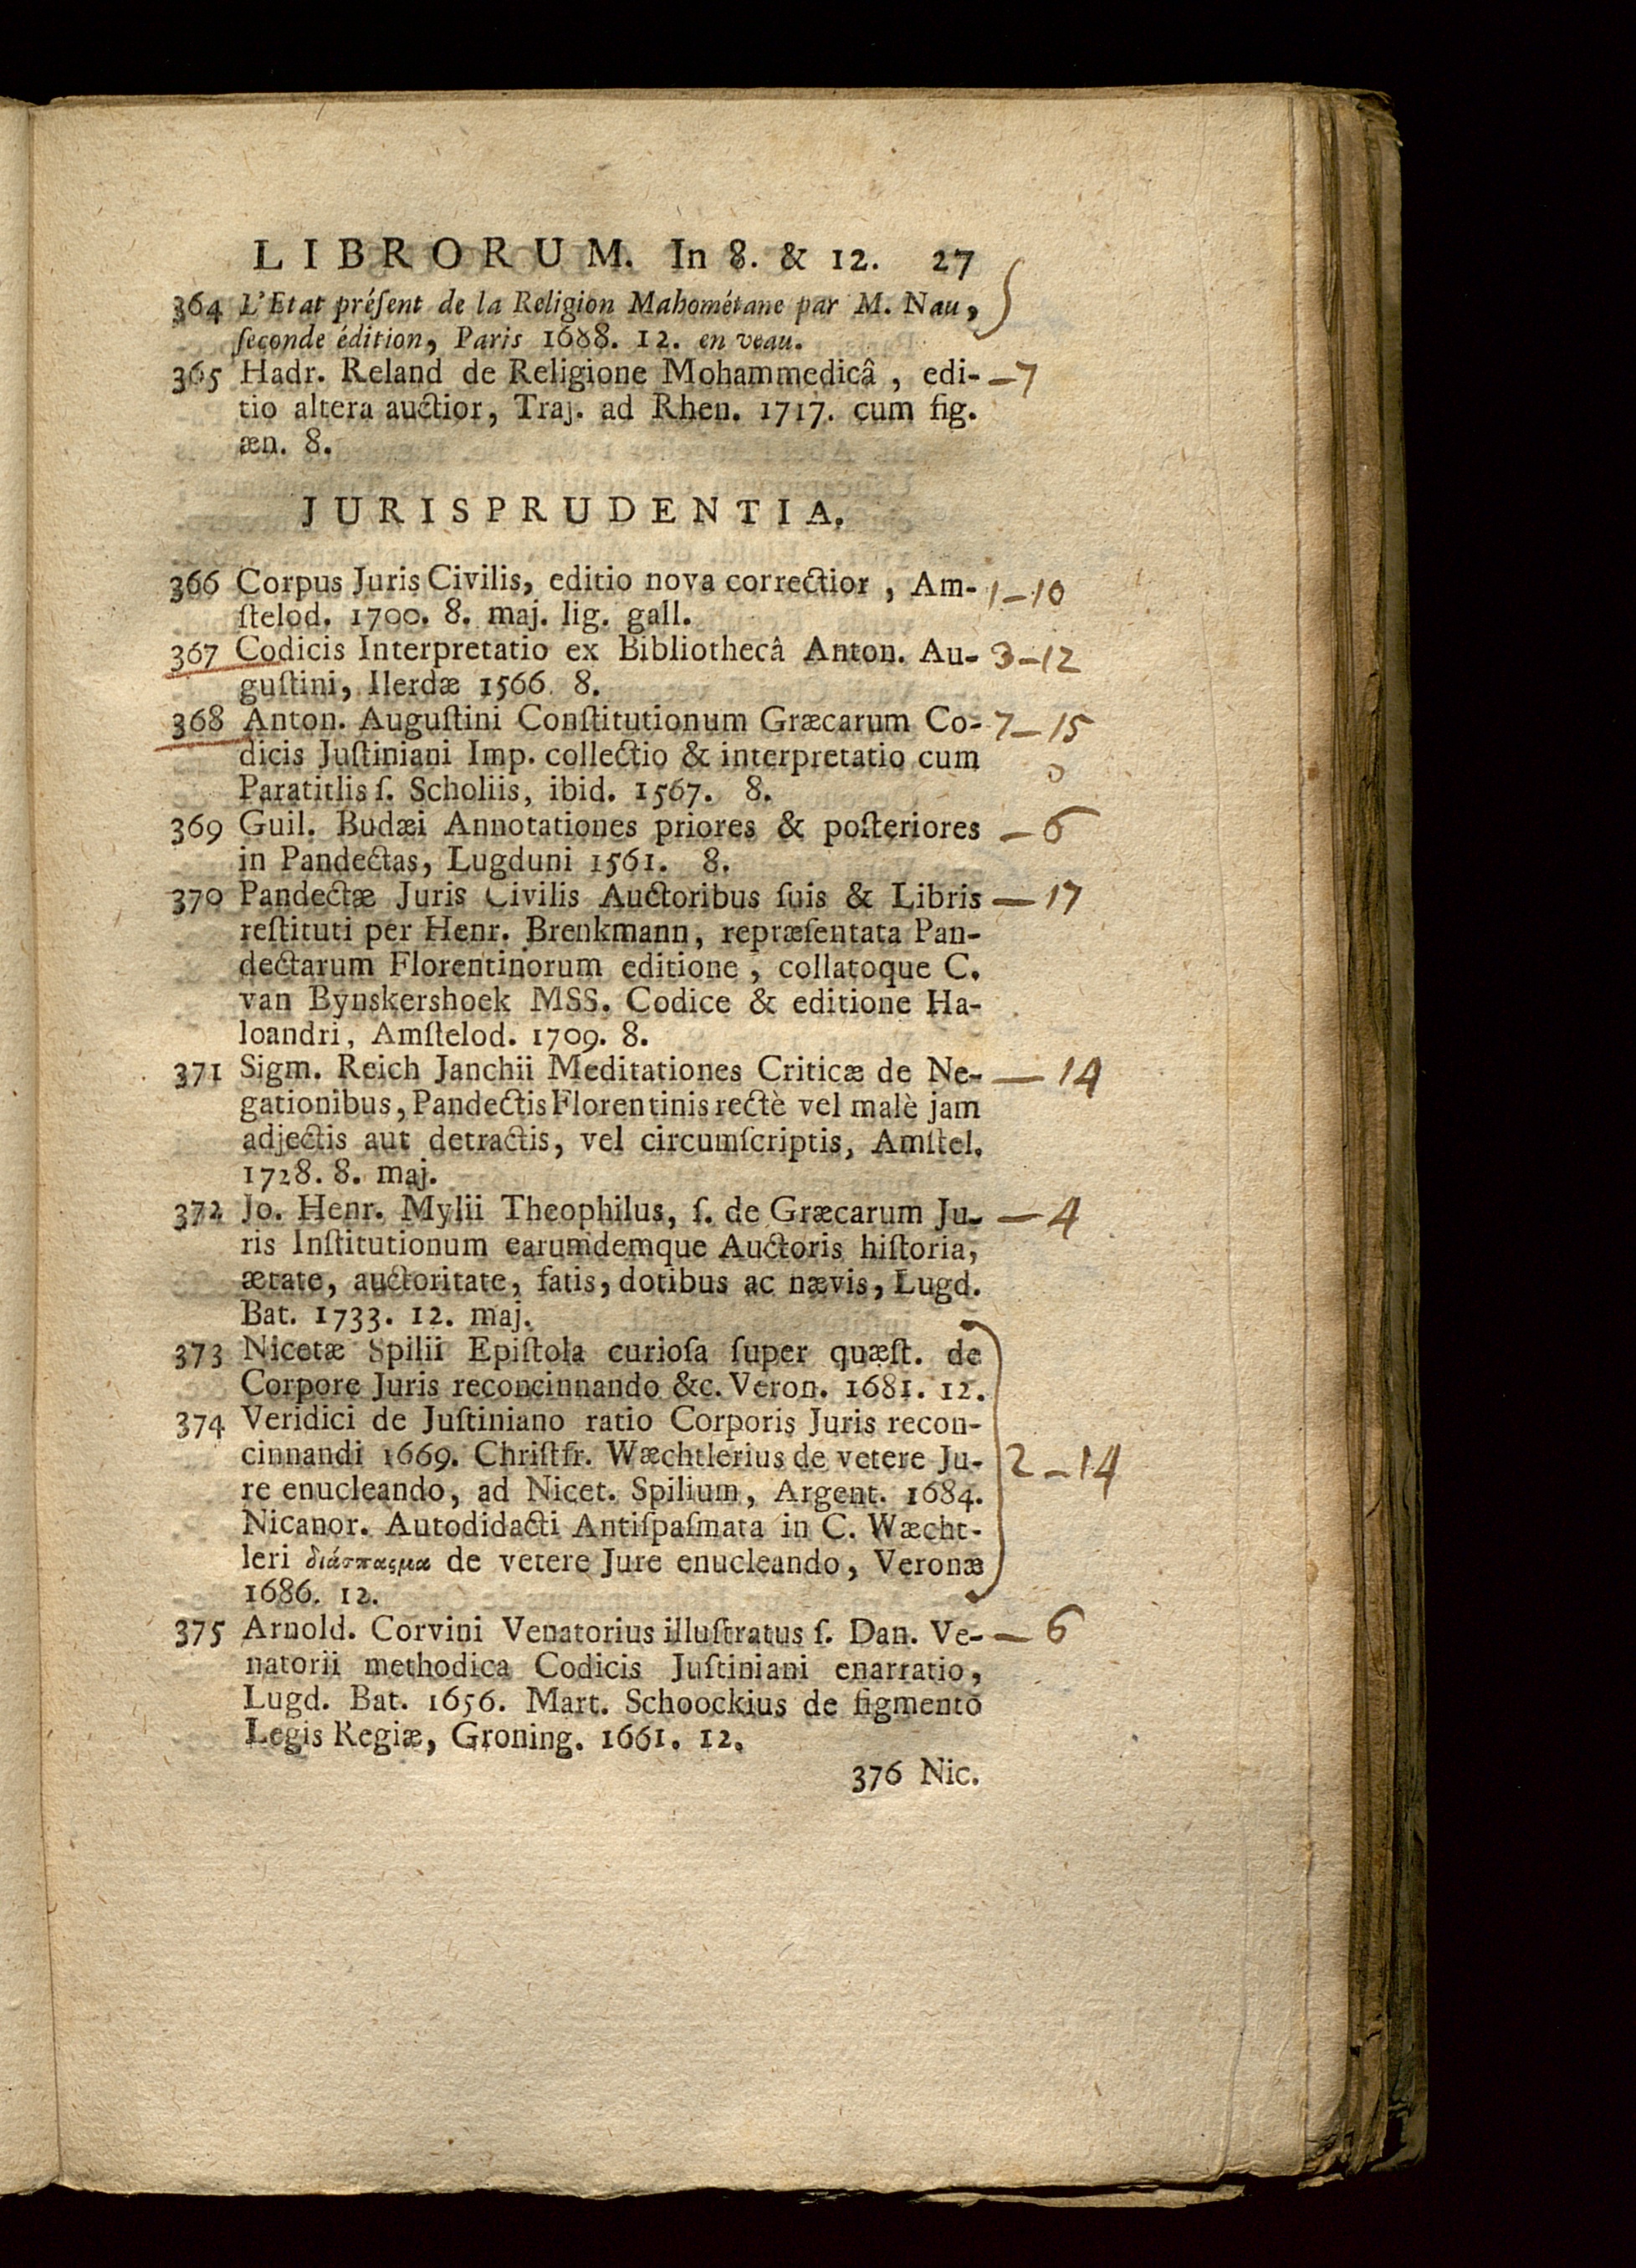 LIBRORUM. In 8. & 12. 27
364 L'Etat préſent de la Religion Mahométane par M. Nau,
ſeconde édition, Paris 1688. 12. en veau.
365 Hadr. Reland de Religione Mohammedicâ, edi- —7
tio altera auctior, Traj. ad Rhen. 1717. cum fig.
æn. 8.
JURISPRUDENTIA.
366 Corpus Juris Civilis, editio nova correctior, Am- 1—10
ſtelod. 1700. 8. maj. lig. gall.
367 Codicis Interpretatio ex Bibliothecâ Anton. Au- 3—12
guſtini, Ilerdæ 1566. 8.
368 Anton. Auguſtini Conſtitutionum Græcarum Co- 7—15
dicis Juſtiniani Imp. collectio & interpretatio cum
Paratitlis ſ. Scholiis, ibid. 1567. 8.
369 Guil. Budæi Annotationes priores & poſteriores —6
in Pandectas, Lugduni 1561. 8.
370 Pandectæ Juris Civilis Auctoribus ſuis & Libris —17
reſtituti per Henr. Brenkmann, repræſentata Pan-
dectarum Florentinorum editione, collatoque C.
van Bynskershoek MSS. Codice & editione Ha-
loandri, Amſtelod. 1709. 8.
371 Sigm. Reich Janchii Meditationes Criticæ de Ne- —14
gationibus, Pandectis Florentinis rectè vel malè jam
adjectis aut detractis, vel circumſcriptis, Amſtel.
1728. 8. maj.
372 Jo. Henr. Mylii Theophilus, ſ. de Græcarum Ju- —4
ris Inſtitutionum earumdemque Auctoris hiſtoria,
ætate, auctoritate, fatis, dotibus ac nævis, Lugd.
Bat. 1733. 12. maj.
373 Nicetæ Spilii Epiſtola curioſa ſuper quæſt. de
Corpore Juris reconcinnando &c. Veron. 1681. 12.
374 Veridici de Juſtiniano ratio Corporis Juris recon-
cinnandi 1669. Chriſtfr. Wæchtlerius de vetere Ju- 2—14
re enucleando, ad Nicet. Spilium, Argent. 1684.
Nicanor. Autodidacti Antiſpaſmata in C. Wæcht-
leri διάσπασμα de vetere Jure enucleando, Veronæ
1686. 12.
375 Arnold. Corvini Venatorius illuſtratus ſ. Dan. Ve- —6
natorii methodica Codicis Juſtiniani enarratio,
Lugd. Bat. 1656. Mart. Schoockius de figmento
Legis Regiæ, Groning. 1661. 12.
376 Nic.